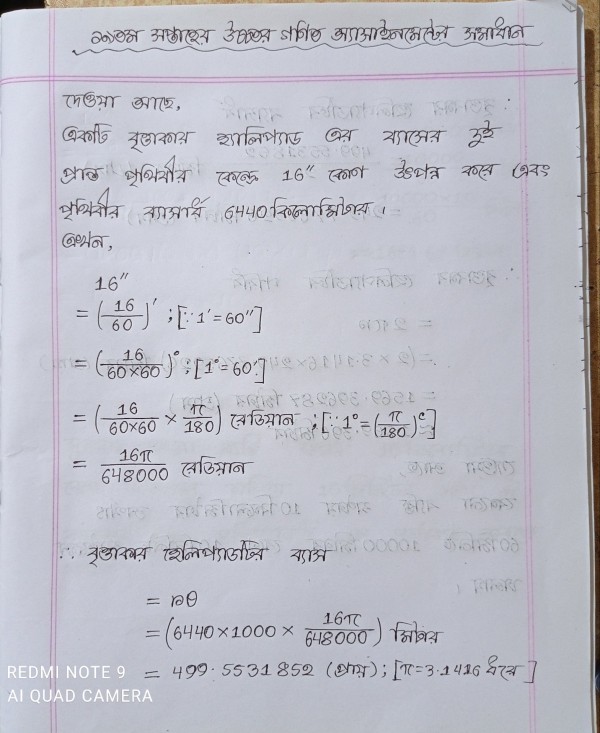 ১৯তম সপ্তাহের উচ্চতর গণিত অ্যাসাইনমেন্টের সমাধান
দেওয়া আছে,
একটি বৃত্তাকার হ্যালিপ্যাড এর ব্যাসের দুই
প্রান্ত পৃথিবীর কেন্দ্রে 16″ কোণ উৎপন্ন করে এবং
পৃথিবীর ব্যাসার্ধ 6440 কিলোমিটার।
এখন,
16″
= (16/60)′ ; [∵ 1′ = 60″]
= (16/60×60)° ; [1° = 60′]
= (16/60×60 × π/180) রেডিয়ান ; [∵ 1° = (π/180)ᶜ]
= 16π/648000 রেডিয়ান
∴ বৃত্তাকার হেলিপ্যাডটির ব্যাস
= rθ
= (6440×1000 × 16π/648000) মিটার
= 499.5531852 (প্রায়) ; [π=3.1416 ধরে]
REDMI NOTE 9
AI QUAD CAMERA